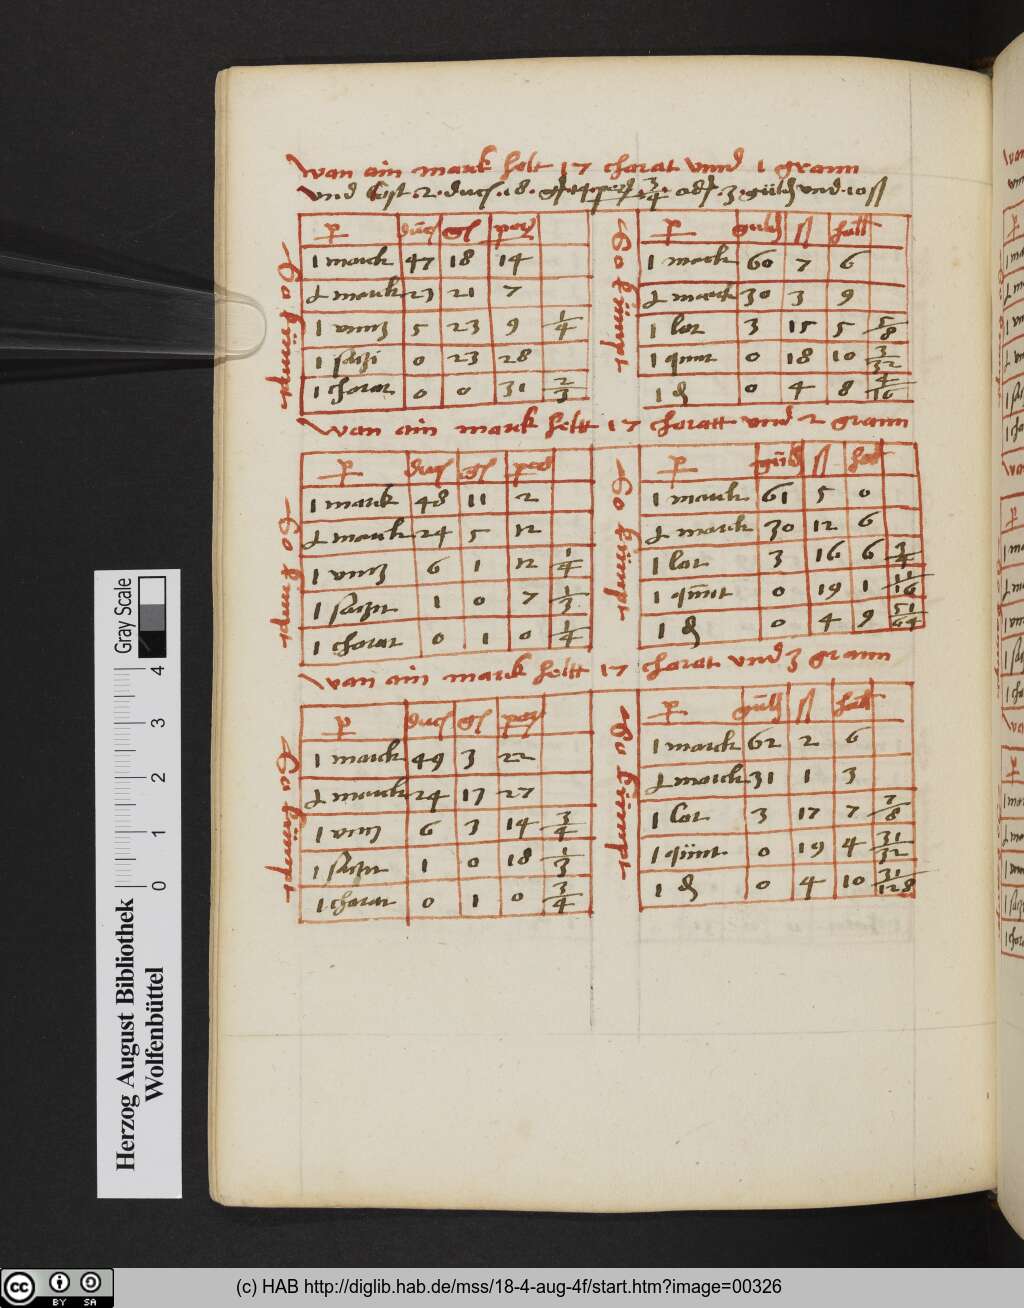 wan ain marck helt 17 charat vnnd 1 grann
vnd Cost 2 duc 18 g 3/4 od 3 guld vnd 10 ß
So kumpt
p duc gl per
1 marck 47 18 14
½ marck 23 21 7
1 vnnz 5 23 9 1/4
1 sazi 0 23 28
1 charat 0 0 31 2/3
So kumpt
p guld ß hall
1 marck 60 7 6
½ marck 30 3 9
1 lot 3 15 5 5/8
1 quint 0 18 10 3/32
1 ₰ 0 4 8
wan ain marck heltt 17 charatt vnd 2 grann
So kumpt
p duc gl per
1 marck 48 11 2
½ marck 24 5 12
1 vnnz 6 1 12 1/4
1 sazi 1 0 7 1/3
1 charat 0 1 0 1/4
So kumpt
p guld ß hal
1 marck 61 5 0
½ marck 30 12 6
1 lot 3 16 6 3/4
1 quint 0 19 1 11/16
1 ₰ 0 4 9 51/64
wan ain marck heltt 17 charat vnd 3 grann
So kumpt
p duc gl per
1 marck 49 3 22
½ marck 24 17 27
1 vnnz 6 3 14 3/4
1 sazi 1 0 18 1/3
1 charat 0 1 0 3/4
So kumpt
p guld ß hall
1 marck 62 2 6
½ marck 31 1 3
1 lot 3 17 7 7/8
1 quint 0 19 4 31/32
1 ₰ 0 4 10 31/128
Gray Scale
4
3
2
1
0
Herzog August Bibliothek
Wolfenbüttel
cc BY SA
(c) HAB http://diglib.hab.de/mss/18-4-aug-4f/start.htm?image=00326